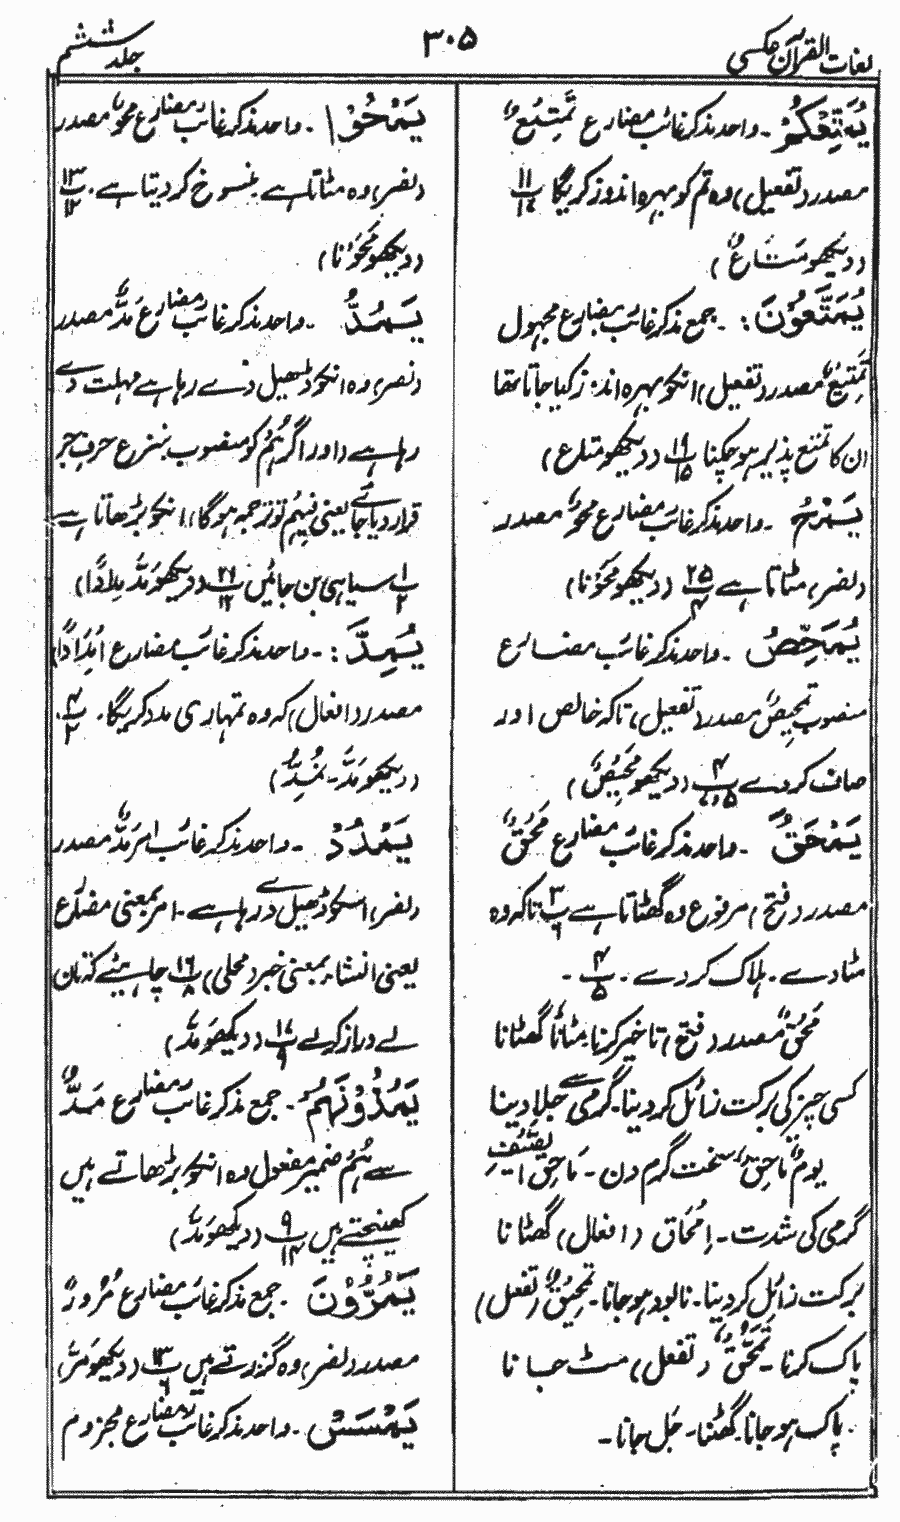 لغات القرآن عکسی
۳۰۵
جلد ششم
یُمَتِّعْکُمْ۔ واحد مذکر غائب مضارع تَمْتِیْعٌ
مصدر (تفعیل) وہ تم کو بہرہ اندوز کریگا ۱۱/۱۲
(دیکھو مَتَاعٌ)
یُمَتَّعُوْنَ:۔ جمع مذکر غائب مضارع مجہول
تَمْتِیْعٌ مصدر (تفعیل) انکو بہرہ اندوز کیا جاتا تھا
ان کا تمتع پذیر ہو چکنا ۱۹/۱۵ (دیکھو متاع)
یَمْحُ۔ واحد مذکر غائب مضارع مَحْوٌ مصدر
(نصر) مٹاتا ہے ۲۵/۴ (دیکھو مَحَوْنَا)
یُمَحِّصُ۔ واحد مذکر غائب مضارع
منصوب تمحیصٌ مصدر (تفعیل) تاکہ خالص اور
صاف کر دے ۴/۵،۷ (دیکھو تمحیصٌ)
یَمْحَقُ۔ واحد مذکر غائب مضارع مَحْقٌ
مصدر (فتح) مرفوع وہ گھٹاتا ہے ۳/۶ تاکہ وہ
مٹادے۔ ہلاک کردے۔ ۴/۵۔
مَحْقٌ مصدر (فتح) تاخیر کرنا۔ مٹانا گھٹانا
کسی چیز کی برکت زائل کر دینا۔ گرمی سے جلا دینا
یومٌ مَاحِقٌ سخت گرم دن۔ مَاحِقُ الصَّیْفِ
گرمی کی شدت۔ اِمْحَاق (افعال) گھٹانا
برکت زائل کردینا۔ نابود ہوجانا۔ تَمْحِیْقٌ (تفعل)
پاک کرنا۔ تَمَحُّقٌ (تفعل) مٹ جانا
پاک ہوجانا۔ گھٹنا۔ جَل جانا۔
یَمْحُوْا۔ واحد مذکر غائب مضارع مَحْوٌ مصدر
(نصر) وہ مٹاتا ہے۔ منسوخ کر دیتا ہے۔ ۱۳/۱۲
(دیکھو مَحَوْنَا)
یَمُدُّ۔ واحد مذکر غائب مضارع مَدٌّ مصدر
(نصر) وہ انکو ڈھیل دے رہا ہے مہلت دے
رہا ہے (اور اگر ہُمْ کو منصوب بنزع حرف جر
قرار دیا جائے یعنی فِیْہِم تو ترجمہ ہوگا) انکو بڑھاتا ہے
۱/۲ سیاہی بن جائیں ۲۱/۱۲ (دیکھو مَدَّ۔ مِدَادًا)
یُمِدَّ:۔ واحد مذکر غائب مضارع اِمْدَادًا
مصدر (افعال) کہ وہ تمہاری مدد کریگا۔ ۴/۴
(دیکھو مَدَّ۔ نُمِدُّ)
یَمْدُدْ۔ واحد مذکر غائب امر مَدٌّ مصدر
(نصر) اسکو ڈھیل دے رہا ہے۔ امر بمعنی مضارع
یعنی انشاء بمعنی خبر (محلی) ۱۶/۸ چاہیئے کہ تان
لے دراز کرلے ۱۷/۹ (دیکھو مَدَّ)
یَمُدُّوْنَہُمْ۔ جمع مذکر غائب مضارع مَدٌّ
سے ہُمْ ضمیر مفعول وہ انکو بڑھاتے ہیں
کھینچتے ہیں ۹/۱۴ (دیکھو مَدَّ)
یَمُرُّوْنَ۔ جمع مذکر غائب مضارع مُرُورٌ
مصدر (نصر) وہ گزرتے ہیں ۱۳/۶ (دیکھو مَرَّ)
یَمْسَسْ۔ واحد مذکر غائب مضارع مجزوم